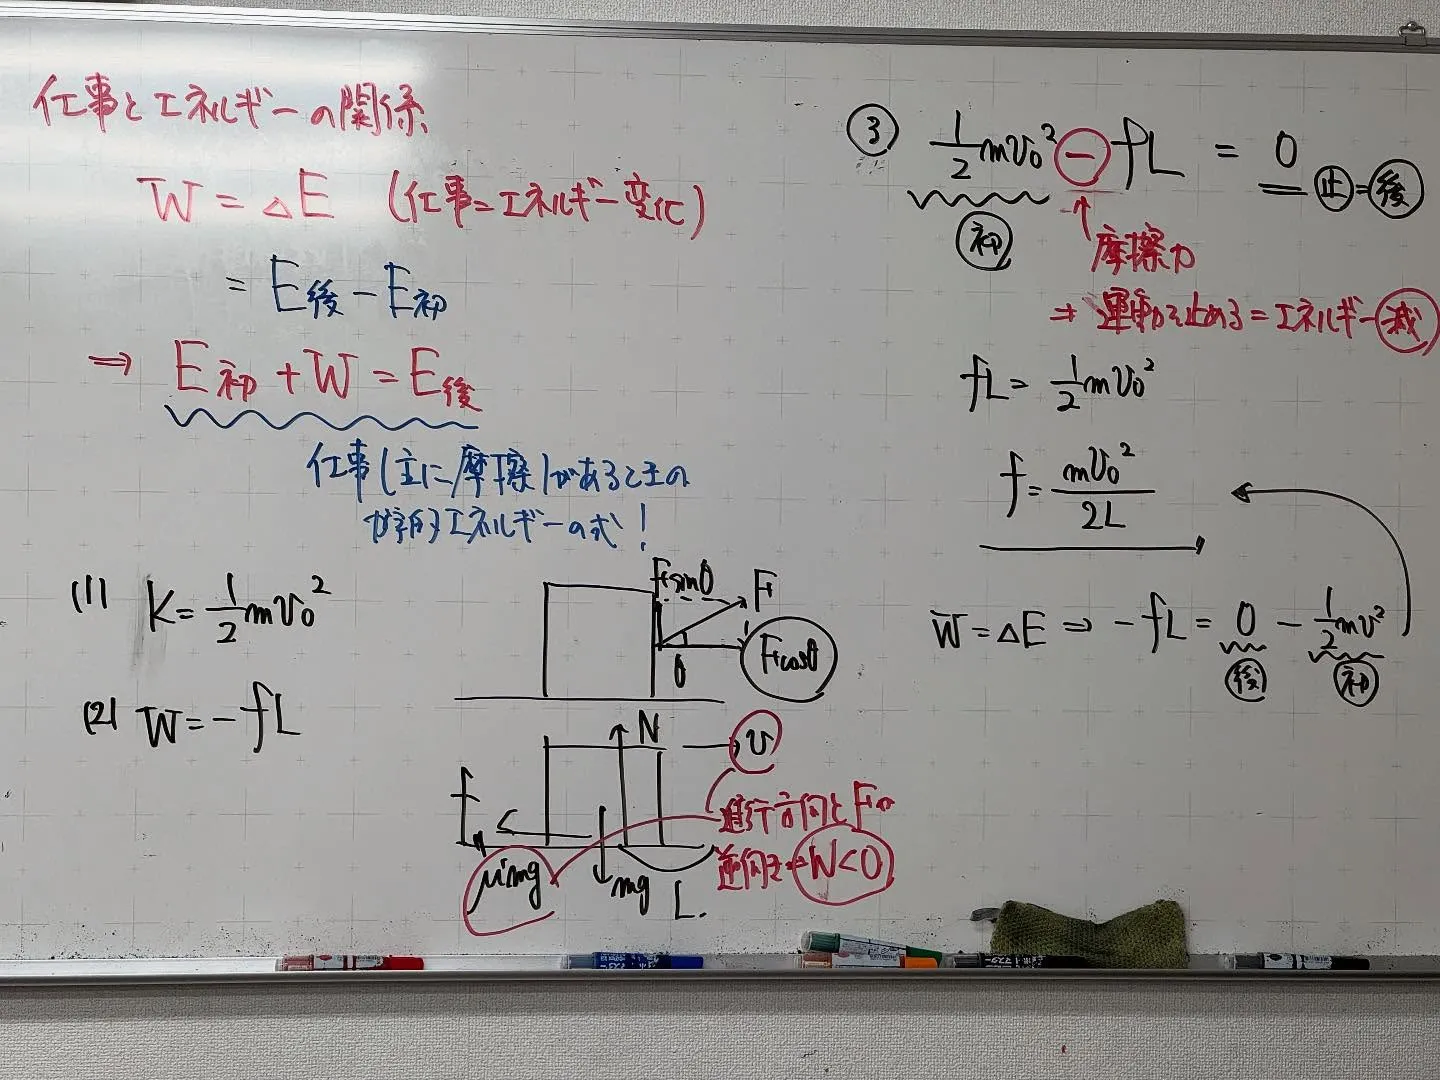 仕事とエネルギーの関係
W = ΔE (仕事=エネルギー変化)
= E後 - E初
⇒ E初 + W = E後
仕事(主に摩擦)があるときの
力学的エネルギーの式!
(1) K = 1/2 mv₀²
(2) W = -fL
Fsinθ
F
θ
Fcosθ
N
v
f
μ'mg
mg
L
進行方向と
逆向き⇒W<0
③ 1/2 mv₀² - fL = 0 止=後
初
↑
摩擦力
⇒ 運動を止める=エネルギー減
fL = 1/2 mv₀²
f = mv₀²/2L
W = ΔE ⇒ -fL = 0 - 1/2 mv²
後 初